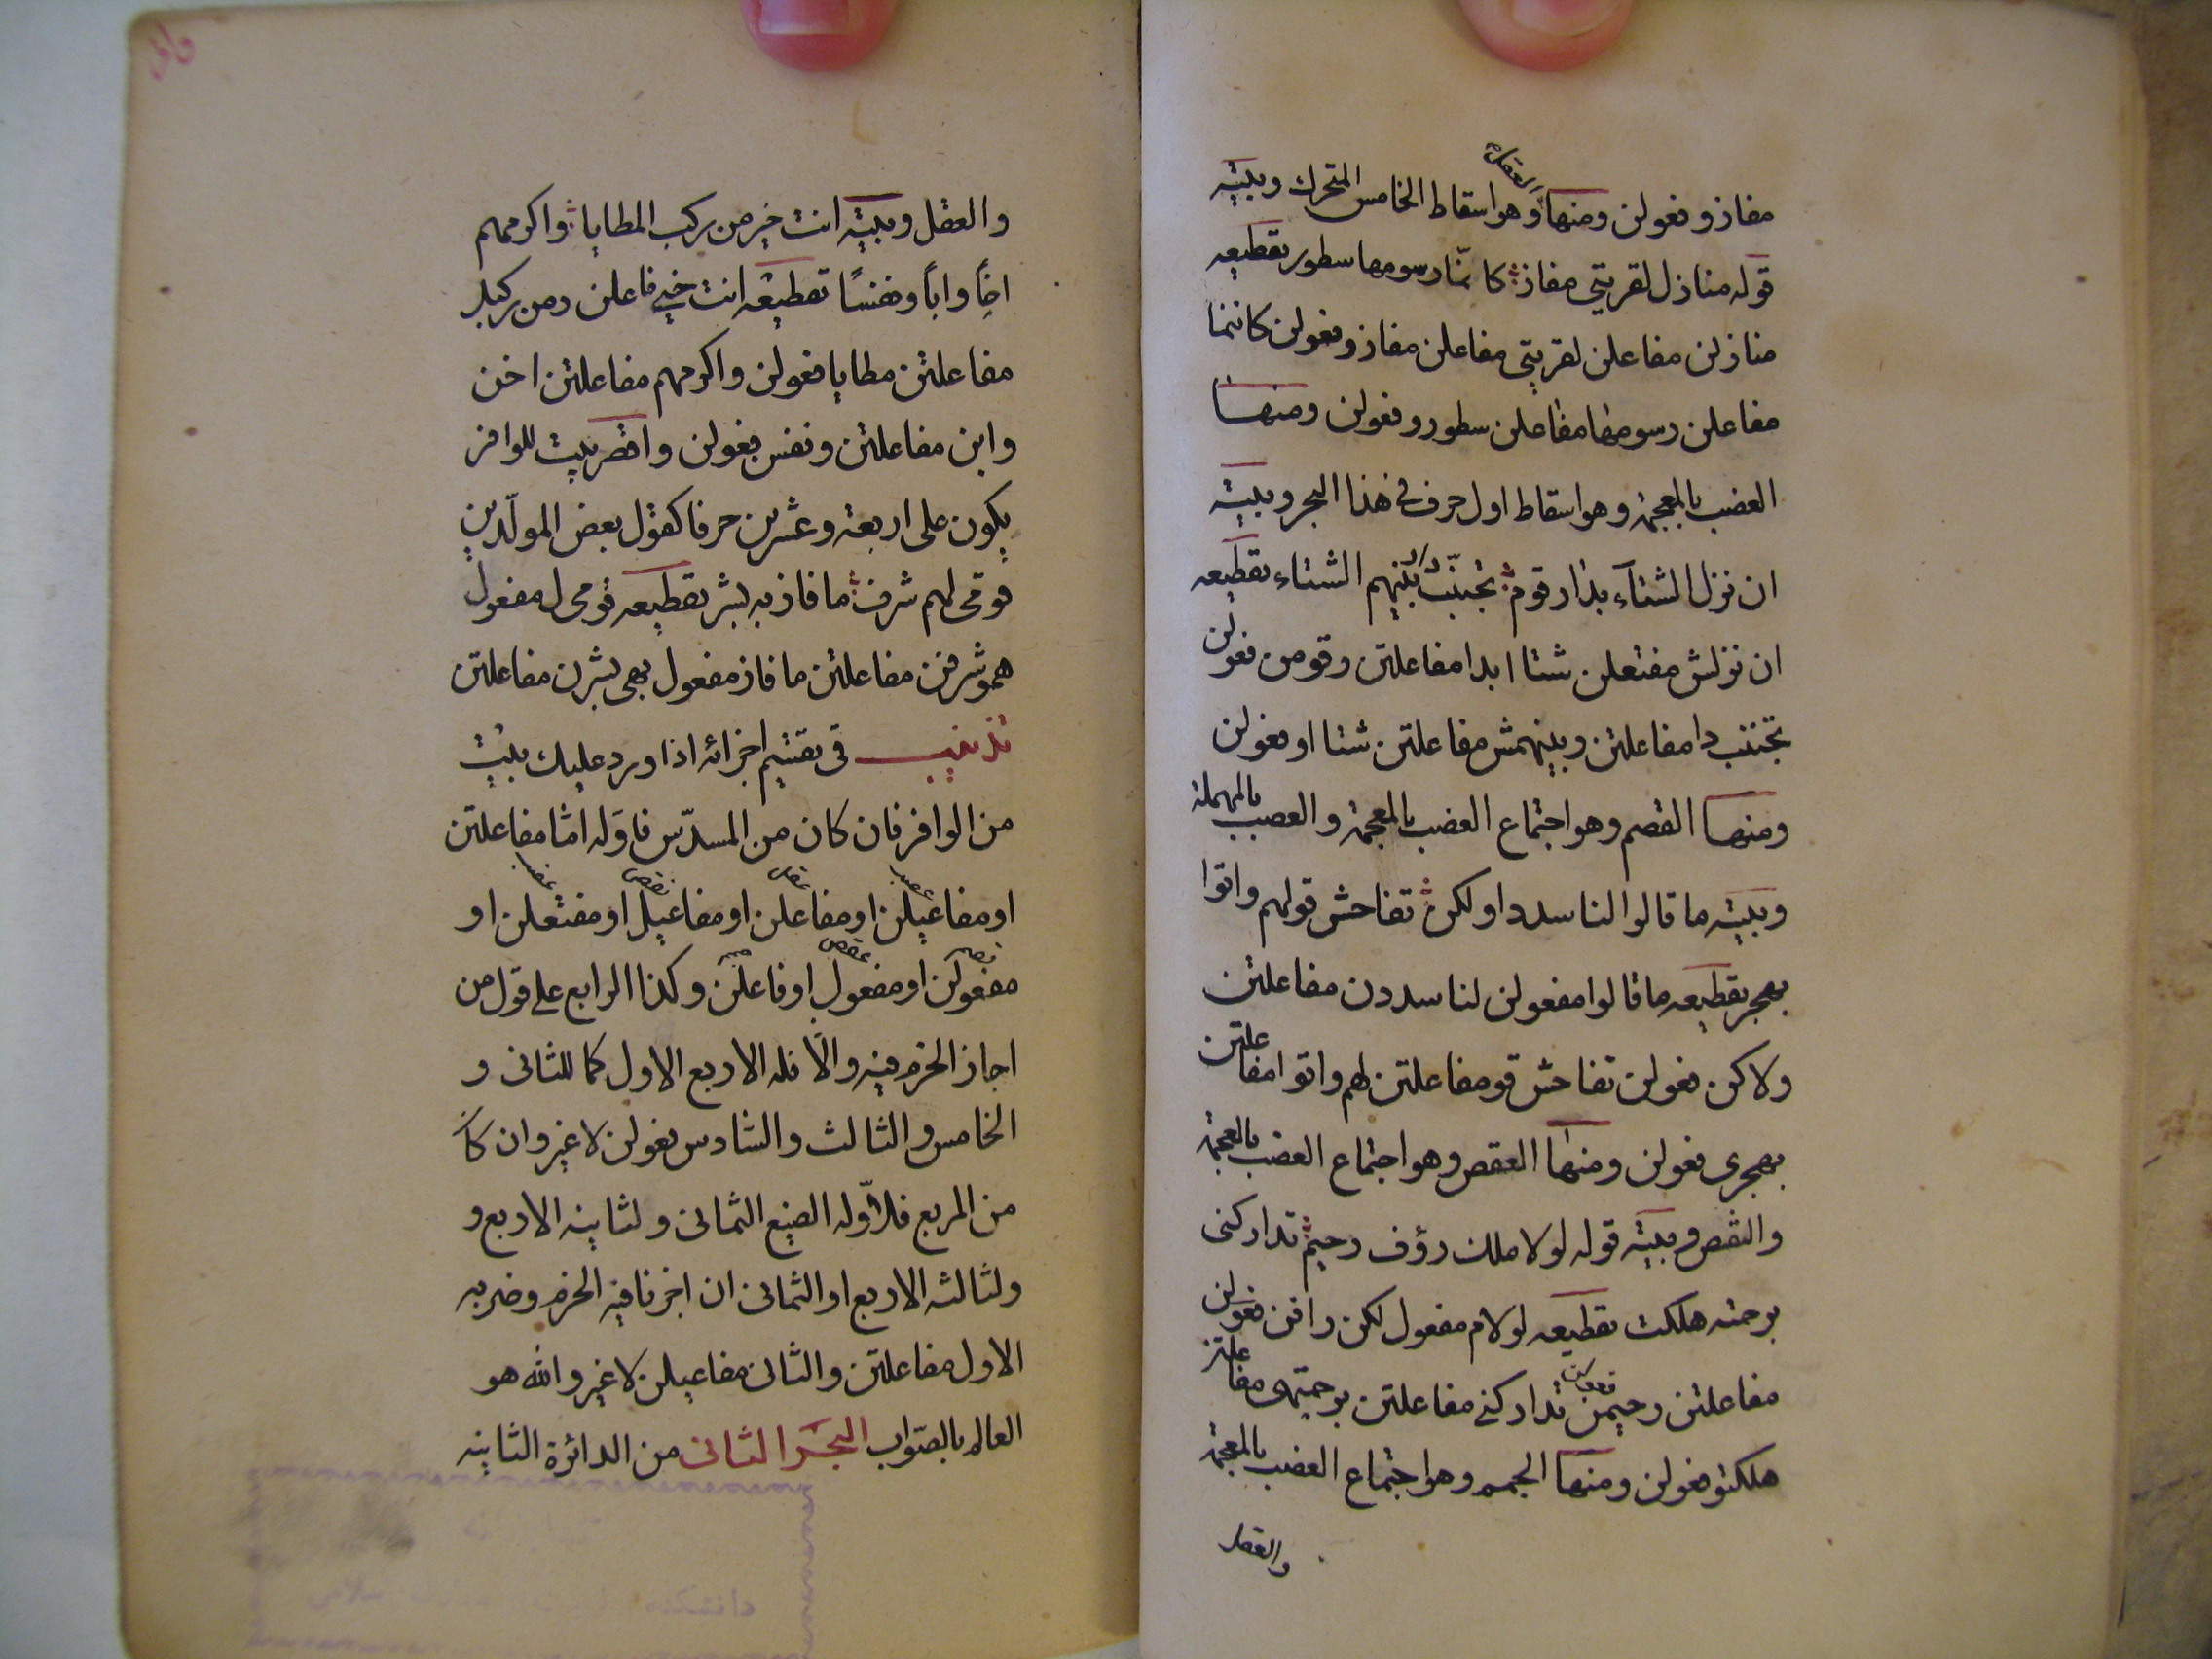 مفاذو فعولن ومنها العقل وهو اسقاط الخامس المتحرك وبيته
قوله منازل لقرتنى مفاذ كانّما رسومها سطور تقطيعه
منازلن مفاعلن لقرتنى مفاعلن مفاذو فعولن كاننما
مفاعلن رسومها مفاعلن سطورو فعولن ومنها
العضب بالمعجمة وهو اسقاط اول حرف فى هذا البحر وبيته
ان نزل الشتآء بدار قوم تجنّب دار بيتهم الشتاء تقطيعه
ان نزلش مفتعلن شتاا بدا مفاعلتن رقومن فعولن
تجننب دا مفاعلتن ربيتهمش مفاعلتن شتااو فعولن
ومنها القصم وهو اجتماع العضب بالمعجمة والعصب بالمهملة
وبيته ما قالوا لنا سددا ولكن تفاحش قولهم واتوا
بهجر تقطيعه ما قالوا مفعولن لنا سددن مفاعلتن
ولاكن فعولن تفاحش قو مفاعلتن لهم واتوا مفاعلتن
بهجرى فعولن ومنها العقص وهو اجتماع العضب بالمعجمة
والنقص وبيته قوله لولا ملك رؤف رحيم تداركنى
برحمته هلكت تقطيعه لولام مفعول لكن رافن فعولن
مفاعلتن رحيمن فعولن تداركنى مفاعلتن برحمتهى مفاعلتن
هلكتو فعولن ومنها الجمم وهو اجتماع العضب بالمعجمة
والعقل
والعقل وبيته انت خير من ركب المطايا واكرمهم
اخاً واباً ونفسًا تقطيعه انت خي فاعلن رمن ركبل
مفاعلتن مطايا فعولن واكرمهم مفاعلتن اخن
وابن مفاعلتن ونفس فعولن واقصر بيت للوافر
يكون على اربعة وعشرين حرفا كقول بعض المولّدين
قومى لهم شرف ما فاز به بشر تقطيعه قومى ل مفعول
همو شرفن مفاعلتن ما فاز مفعول بهى بشرن مفاعلتن
تذنيب فى تقسيم اجزائه اذا ورد عليك بيت
من الوافر فان كان من المسدّس فاوّله امّا مفاعلتن
او مفاعيلن عصب او مفاعلن عقل او مفاعيل نقص او مفتعلن عضب او
مفعولن قصم او مفعول عقص او فاعلن جمم وكذا الرابع على قول من
اجاز الخرم فيه والّا فله الاربع الاول كما للثانى و
الخامس والثالث والسادس فعولن لا غير وان كان
من المربع فلاوّله الصيغ الثمانى ولثانيه الاربع و
ولثالثه الاربع او الثمانى ان اجزنا فيه الخرم وضربه
الاول مفاعلتن والثانى مفاعيلن لا غير والله هو
العالم بالصّواب البحر الثانى من الدائرة الثانيه